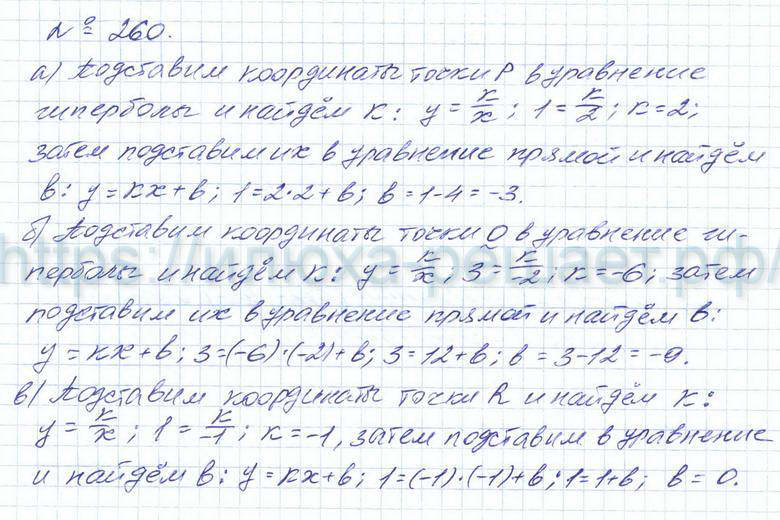 № 260.
а) Подставим координаты точки P в уравнение
гиперболы и найдём к: y = к/x; 1 = к/2; к = 2;
затем подставим их в уравнение прямой и найдём
в: y = кx + в; 1 = 2·2 + в; в = 1-4 = -3.
б) Подставим координаты точки Q в уравнение ги-
перболы и найдём к: y = к/x; 3 = к/-2; к = -6; затем
подставим их в уравнение прямой и найдём в:
y = кx + в; 3 = (-6)·(-2) + в; 3 = 12 + в; в = 3-12 = -9.
в) Подставим координаты точки R и найдём к:
y = к/x; 1 = к/-1; к = -1, затем подставим в уравнение
и найдём в: y = кx + в; 1 = (-1)·(-1) + в; 1 = 1 + в; в = 0.